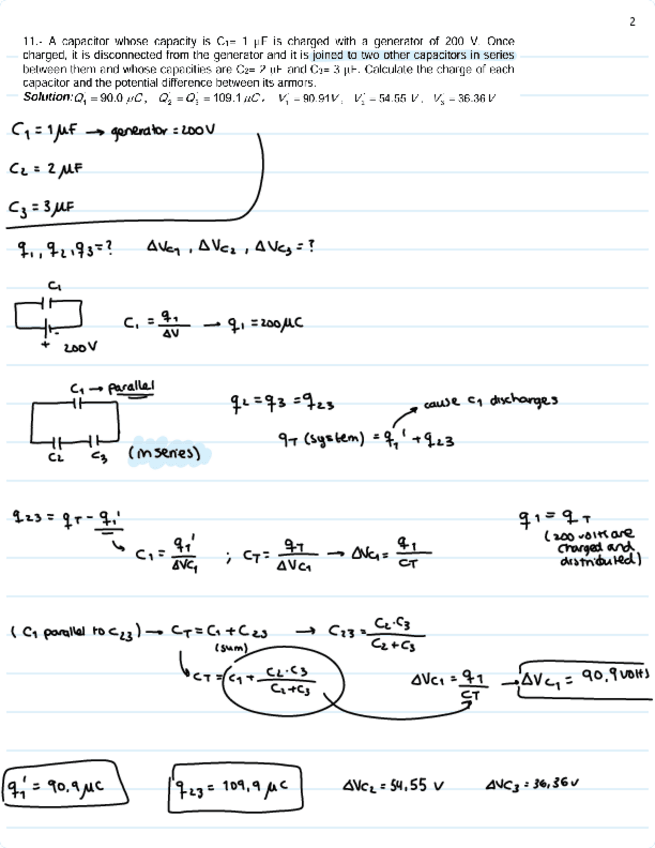 2
11.- A capacitor whose capacity is C₁= 1 µF is charged with a generator of 200 V. Once
charged, it is disconnected from the generator and it is joined to two other capacitors in series
between them and whose capacities are C₂= 2 µF and C₃= 3 µF. Calculate the charge of each
capacitor and the potential difference between its armors.
Solution: Q₁' = 90.0 µC, Q₂' = Q₃' = 109.1 µC, V₁' = 90.91V, V₂' = 54.55 V, V₃' = 36.36 V
C₁ = 1 µF → generator = 200V
C₂ = 2 µF
C₃ = 3 µF
q₁, q₂, q₃ = ? ΔVc₁, ΔVc₂, ΔVc₃ = ?
C₁
C₁ = q₁/ΔV → q₁ = 200 µC
+ -
200V
C₁ → parallel
q₂ = q₃ = q₂₃
cause C₁ discharges
qT (system) = q₁' + q₂₃
C₂ C₃ (in series)
q₂₃ = qT - q₁'
q₁ = qT
(200 volts are
charged and
distributed)
C₁ = q₁'/ΔVC₁ ; CT = qT/ΔVC₁ → ΔVC₁ = q₁/CT
(C₁ parallel to C₂₃) → CT = C₁ + C₂₃ → C₂₃ = C₂·C₃/C₂+C₃
(sum)
CT = C₁ + C₂·C₃/C₂+C₃
ΔVC₁ = q₁/CT → ΔVC₁ = 90,9 volts
q₁' = 90,9 µC q₂₃ = 109,9 µC ΔVC₂ = 54,55 V ΔVC₃ = 36,36 V